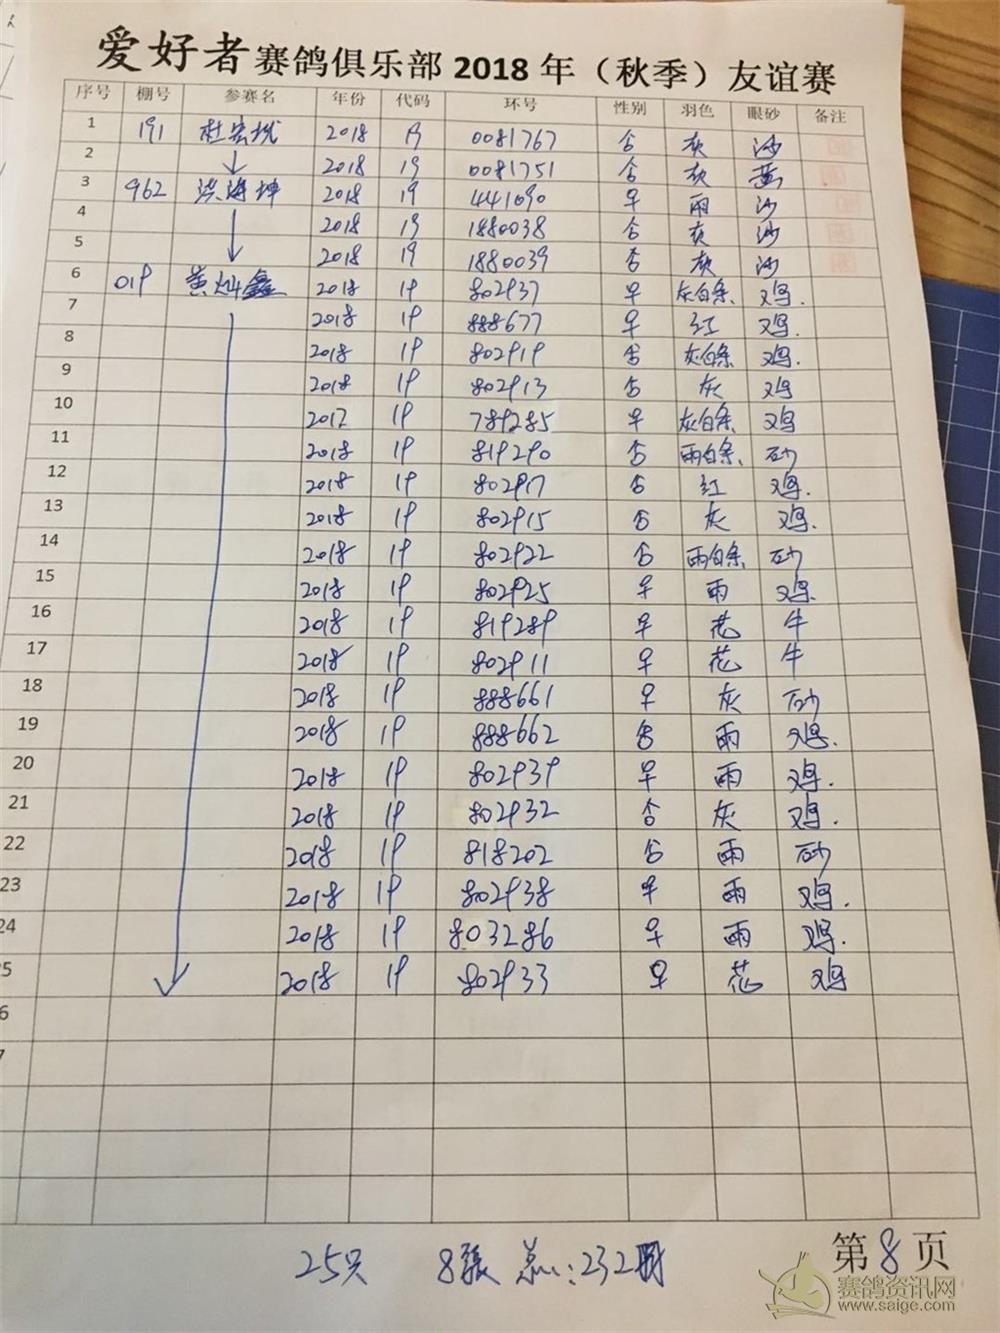 爱好者赛鸽俱乐部 2018 年（秋季）友谊赛
序号 棚号 参赛名 年份 代码 环号 性别 羽色 眼砂 备注
1 191 2018 19 0081767 否 灰 沙
2 2018 19 0081751 否 灰 黄
3 962 洪海坤 2018 19 441090 早 雨 沙
4 2018 19 1880038 否 灰 沙
5 2018 19 1880039 否 灰 沙
6 019 黄灿鑫 2018 19 802937 早 灰白条. 鸡.
7 2018 19 888677 早 红 鸡.
8 2018 19 802919 否 灰白条 鸡.
9 2018 19 802913 否 灰 鸡
10 2017 19 789285 早 灰白条 鸡
11 2018 19 819290 否 雨白条、 砂
12 2018 19 802917 否 红 鸡.
13 2018 19 802915 否 灰 鸡.
14 2018 19 802922 否 雨白条 砂
15 2018 19 802925 早 雨 鸡.
16 2018 19 819289 早 花 牛
17 2018 19 802911 早 花 牛
18 2018 19 888661 早 灰 砂
19 2018 19 888662 否 雨 鸡.
20 2018 19 802939 早 雨 鸡.
21 2018 19 802932 否 灰 鸡.
22 2018 19 818202 否 雨 砂
23 2018 19 802938 早 雨 鸡.
24 2018 19 803286 早 雨 鸡.
25 2018 19 802933 早 花 鸡
6
7
25只 8張 共:232羽
第 8 页
赛鸽资讯网
www.saige.com